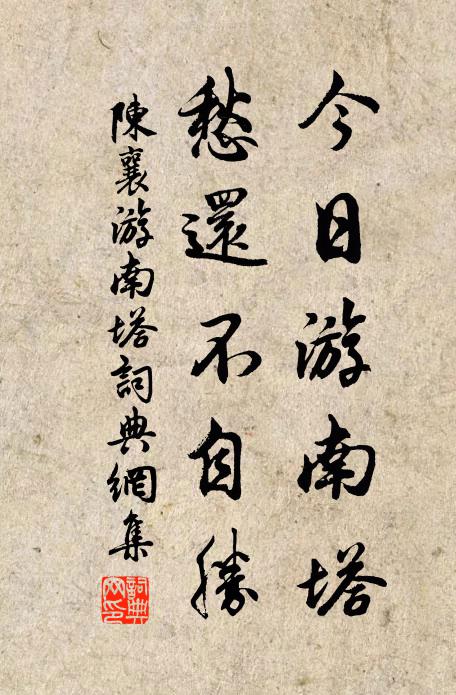 今日游南塔
愁還不自勝
陳襄游南塔詞典網集
詞典网印